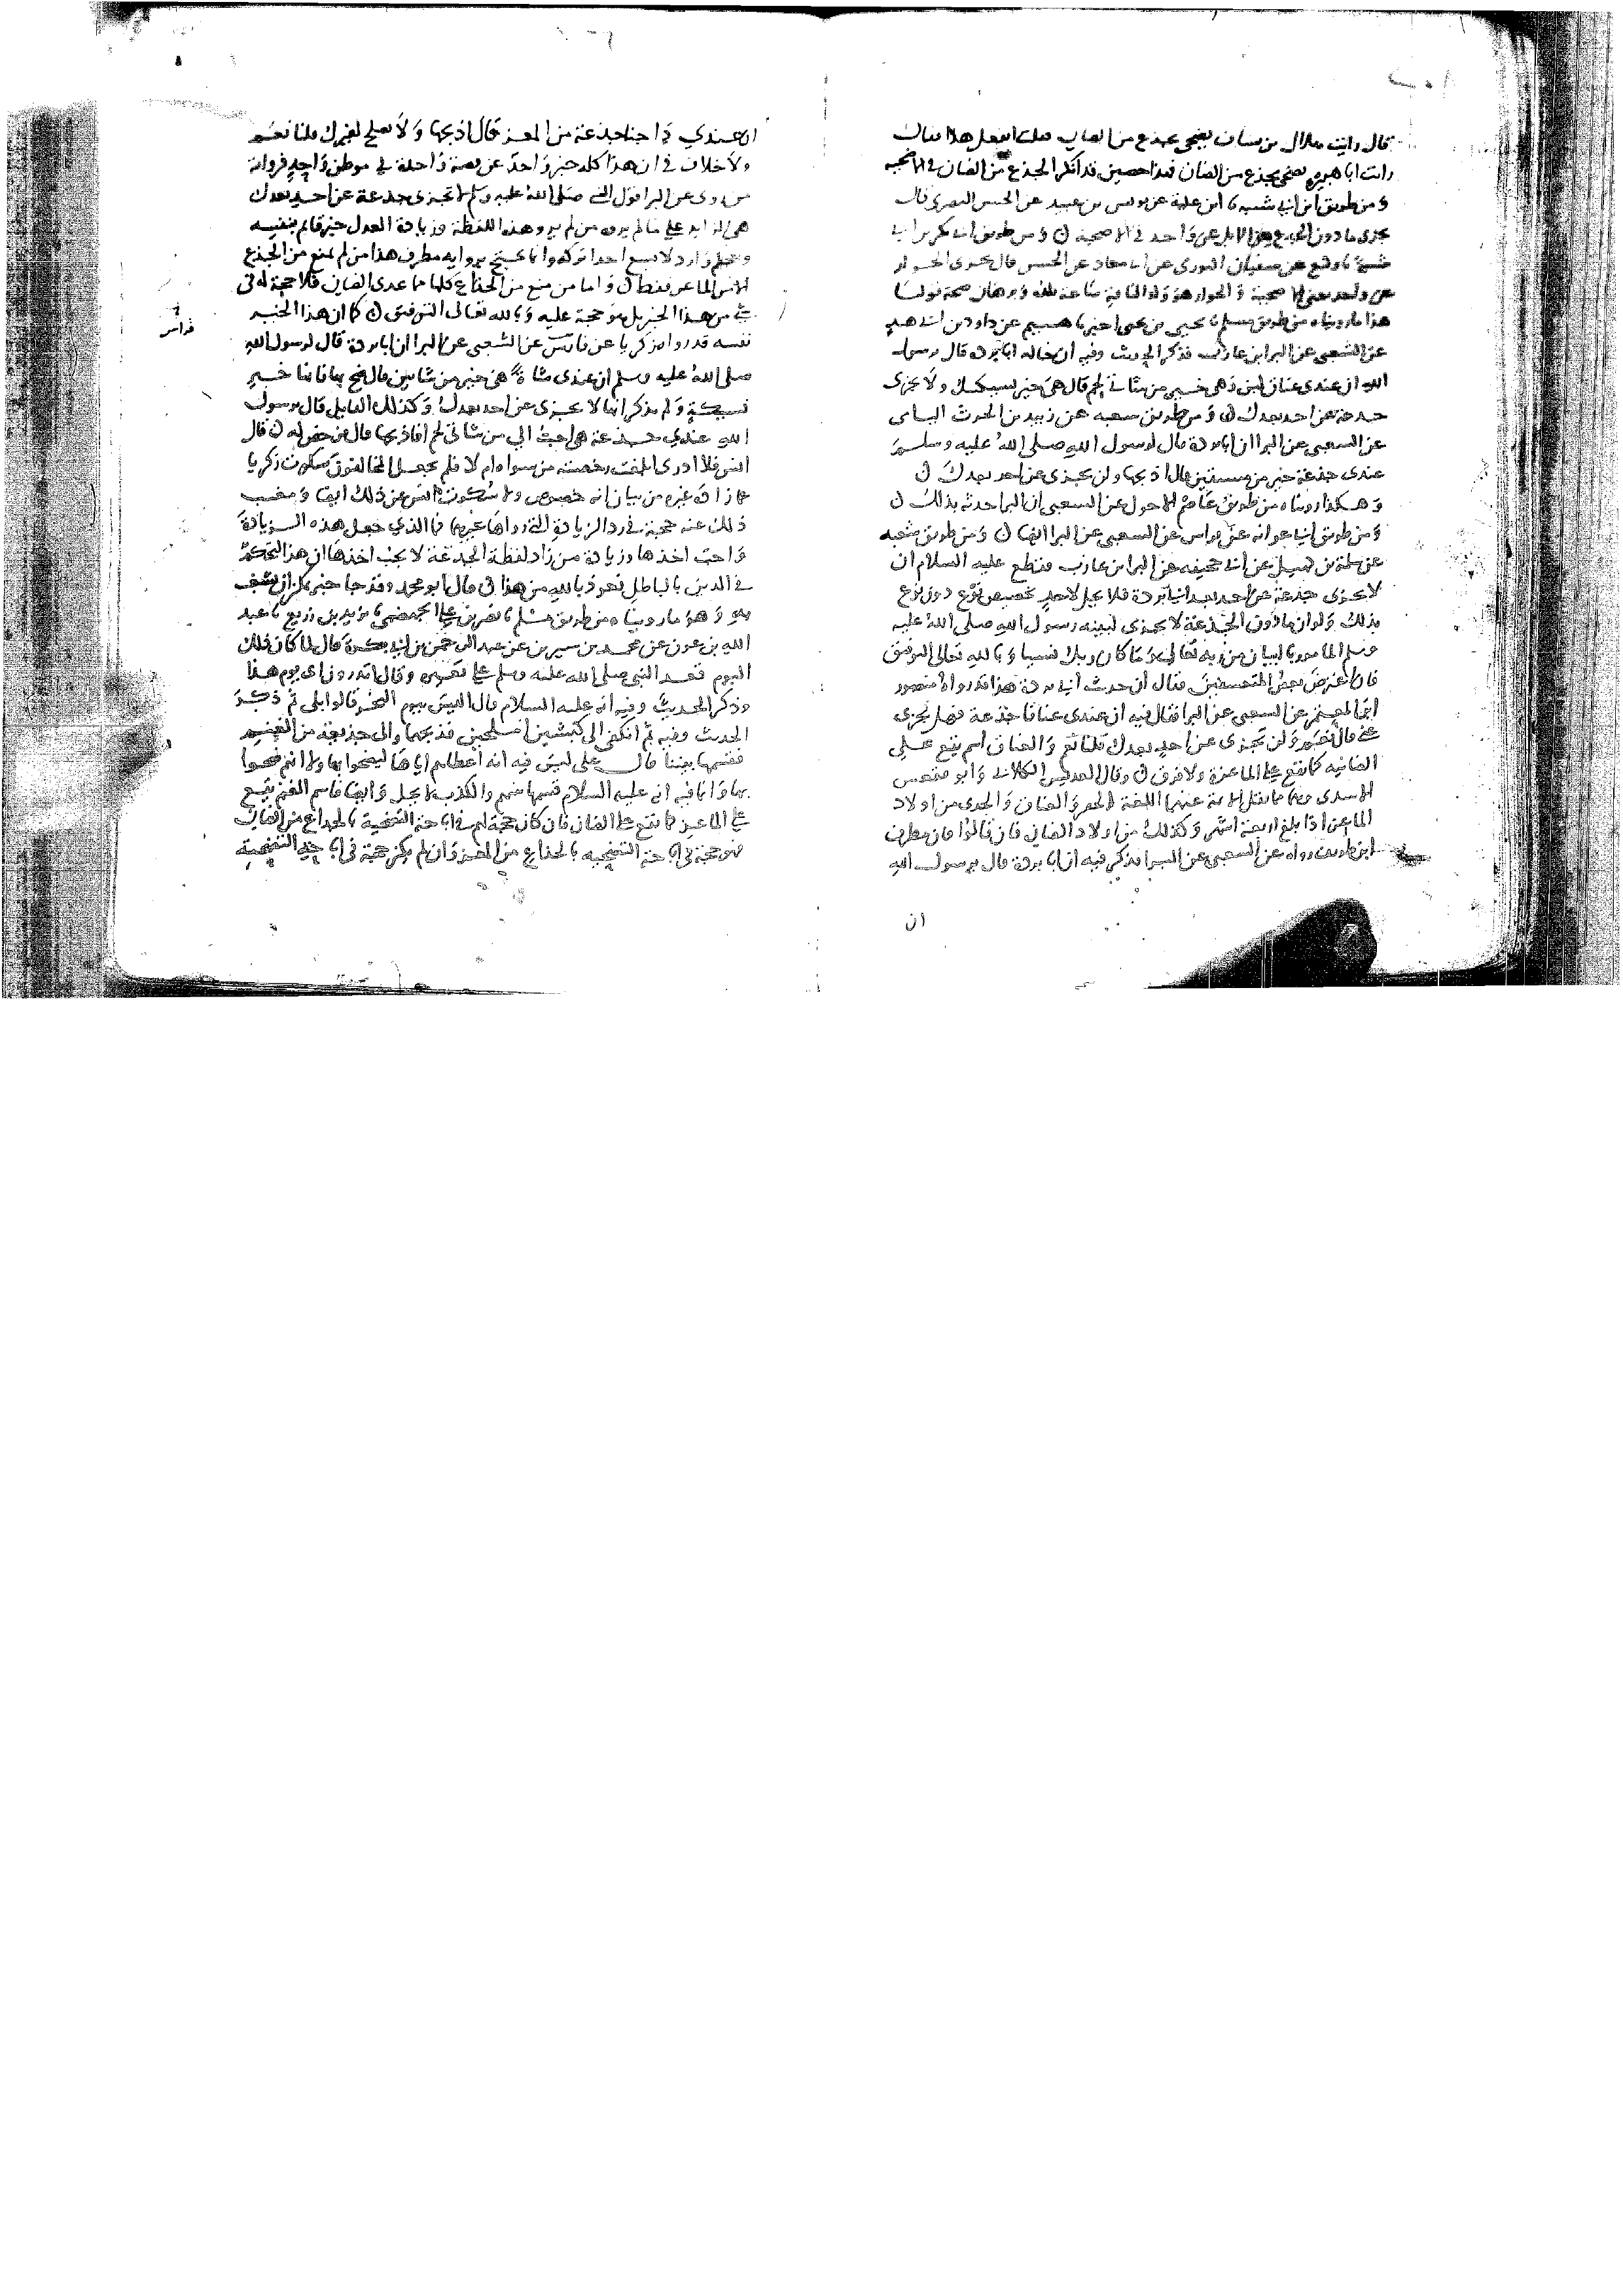 قال رايت هلال بن يساف يضحي بجذع من الضان فقلت اتفعل هذا فقال
رايت ابا هريرة يضحي بجذع من الضان فهذا حصين قد انكر الجذع من الضان في الاضحية
ومن طريق ابن ابي شيبة نا ابن علية عن يونس بن عبيد عن الحسن البصري قال
يجزي ما دون الجذع من الابل عن واحد في الاضحية ن ومن طريق ابي بكر بن ابي
شيبة نا وكيع عن سفيان الثوري عن ابي معاذ عن الحسن قال يجزي الحوار
عن واحد يعني الاضحية والحوار هو ولد الناقة ساعة تلده وبرهان صحة قولنا
هذا ما رويناه من طريق مسلم نا يحيى بن يحيى اخبرنا هشيم عن داود بن ابي هند
عن الشعبي عن البرا بن عازب فذكر الحديث وفيه ان خاله ابا بردة قال يرسول
الله ان عندي عناق لبن وهي خير من شاتي لحم قال هي خير نسيكتيك ولا تجزي
جذعة عن احد بعدك ن ومن طريق شعبة عن زبيد بن الحرث اليامي
عن الشعبي عن البرا ان ابا بردة قال لرسول الله صلى الله عليه وسلم
عندي جذعة خير من مسنتين قال اذبحها ولن تجزي عن احد بعدك ن
وهكذا رويناه من طريق عاصم الاحول عن الشعبي ان البرا حدثه بذلك ن
ومن طريق ابي عوانه عن فراس عن الشعبي عن البرا ايضا ن ومن طريق شعبه
عن سلمة بن كهيل عن ابي جحيفه عن البرا بن عازب فقطع عليه السلام ان
لا تجزي جذعة عن احد بعد ابي بردة فلا يحل لاحد تخصيص نوع دون نوع
بذلك ولو ان ما دون الجذعة لا يجزي لبينه رسول الله صلى الله عليه
وسلم المامور بالبيان من ربه تعالى وما كان ربك نسيا وبالله تعالى التوفيق
فان اعترض بعض المتعسفين فقال ان حديث ابي بردة هذا قد رواه منصور
ابن المعتمر عن الشعبي عن البرا فقال فيه ان عندي عناقا جذعة فهل تجزي
عني قال نعم ولن تجزي عن احد بعدك قلنا نعم والعناق اسم يقع على
الضانيه كما يقع على الماعزة ولا فرق ن وقال العدبس الكلابي وابو فقعس
الاسدي وهما ما نقل الايمة عنهما اللغة الجفر والعناق والجدي من اولاد
الماعز اذا بلغ اربعة اشهر وكذلك من اولاد الضان فان قالوا فان مطرف
ابن طريف رواه عن الشعبي عن البرا فذكر فيه ان ابا بردة قال يرسول الله
ان
ان عندي داجنا جذعة من المعز قال اذبحها ولا تصلح لغيرك قلنا نعم
ولا خلاف في ان هذا كله خبر واحد عن قصة واحدة في موطن واحد فرواية
من روى عن البرا قول النبي صلى الله عليه وسلم لا تجزي جذعة عن احد بعدك
هي الزايد على ما لم يروه من لم يرو هذه اللفظة وزيادة العدل خبر قايم بنفسه
وحكم وارد لا يسع احدا تركه وانما يحتج برواية مطرف هذا من لم يمنع من الجذع
الا من الماعز فقط ن واما من منع من الجذاع كلها ما عدى الضان فلا حجة له في
شي من هذا الخبر بل هو حجة عليه وبالله تعالى التوفيق ن كما ان هذا الخبر
نفسه قد رواه زكريا عن فراس عن الشعبي عن البرا ان ابا بردة قال لرسول الله
صلى الله عليه وسلم ان عندي شاة هي خير من شاتين قال ضح بها فانها خير
نسيكة ولم يذكر انها لا تجزي عن احد بعدك وكذلك القايل قال يرسول
الله عندي جذعة هي احب الي من شاتي لحم افاذبحها قال فرخص له ن قال
انس فلا ادري ابلغت رخصته من سواه ام لا فلم يجعل المخالفون سكوت زكريا
عما زاده غيره من بيان انه خصوص ولا سكوت انس عن ذلك ايضا ومغيب
ذلك عنه حجة في رد الزيادة التي رواها غيرهما فما الذي جعل هذه الزيادة
واجب اخذها وزيادة من زاد لفظة الجذعة لا يجب اخذها ان هذا التحكم
في الدين بالباطل نعوذ بالله من هذا ن قال ابو محمد وقد جا خبر يمكن ان يشغب
به وهو ما رويناه من طريق مسلم نا نصر بن علي الجهضمي نا يزيد بن زريع نا عبد
الله بن عون عن محمد بن سيرين عن عبد الرحمن بن ابي بكرة قال لما كان ذلك
اليوم قعد النبي صلى الله عليه وسلم على بعيره وقال اتدرون اي يوم هذا
وذكر الحديث وفيه انه عليه السلام قال اليس بيوم النحر قالوا بلى ثم ذكر
الحديث وفيه ثم انكفى الى كبشين املحين فذبحهما والى جذيعة من الغنم
فقسمها بيننا قال علي ليس فيه انه اعطاهم اياها ليضحوا بها ولا انهم ضحوا
بها وانما فيه انه عليه السلام قسمها بينهم والكذب لا يحل وايضا فاسم الغنم يقع
على الماعز كما يقع على الضان فان كان حجة لهم في اباحة التضحية بالجذاع من الضان
فهو حجة في اباحة التضحيه بالجذاع من المعز وان لم يكن حجة في اباحة التضحية
فراس